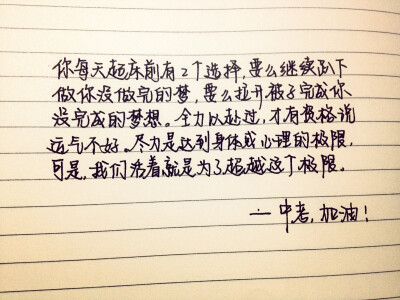 你每天起床前有2个选择,要么继续趴下
做你没做完的梦,要么拉开被子完成你
没完成的梦想。全力以赴过,才有资格说
运气不好。尽力是达到身体或心理的极限,
可是,我们活着就是为了超越这个极限。
—中考,加油!